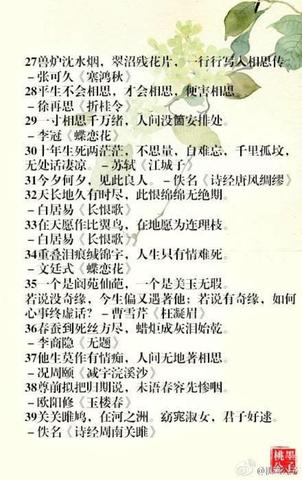 27兽炉沈水烟，翠沼残花片，一行行写入相思传
－张可久《塞鸿秋》
28平生不会相思，才会相思，便害相思
－徐再思《折桂令》
29 一寸相思千万绪，人间没箇安排处。
－李冠《蝶恋花》
30十年生死两茫茫，不思量，自难忘，千里孤坟，
无处话凄凉。－苏轼《江城子》
31今夕何夕，见此良人。－佚名《诗经唐风绸缪》
32天长地久有时尽，此恨绵绵无绝期。
－白居易《长恨歌》
33在天愿作比翼鸟，在地愿为连理枝。
－白居易《长恨歌》
34重叠泪痕缄锦字，人生只有情难死。
－文廷式《蝶恋花》
35 一个是阆苑仙葩，一个是美玉无瑕
若说没奇缘，今生偏又遇著他；若说有奇缘，如何
心事终虚话？－曹雪芹《枉凝眉》
36春蚕到死丝方尽，蜡炬成灰泪始乾。
－李商隐《无题》
37他生莫作有情痴，人间无地著相思。
－况周颐《减字浣溪沙》
38尊前拟把归期说，未语春容先惨咽。
－欧阳修《玉楼春》
39关关雎鸠，在河之洲。窈窕淑女，君子好逑。
－佚名《诗经周南关雎》